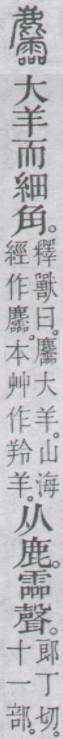 麢大羊而細角。釋獸曰。麢大羊。山海經作麢。本艸作羚羊。从鹿。霝聲。郎丁切。十一部。